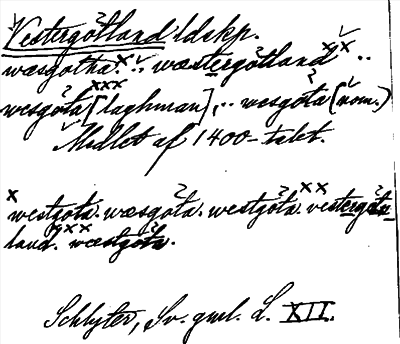 Vestergötland ldskp.
wæsgøtha. ˣ.. wæstergötland ˣ ˣ ..
wesgøta ˣˣˣ [laghman],.. wesgøta (nom.)
Midlet af 1400-talet.
ˣ westgøta. wæsgøta. westgøta. ˣˣ vestergøt-
land. ˣˣ wæstgøta.
Schlyter, Sv. gml. L. XII.